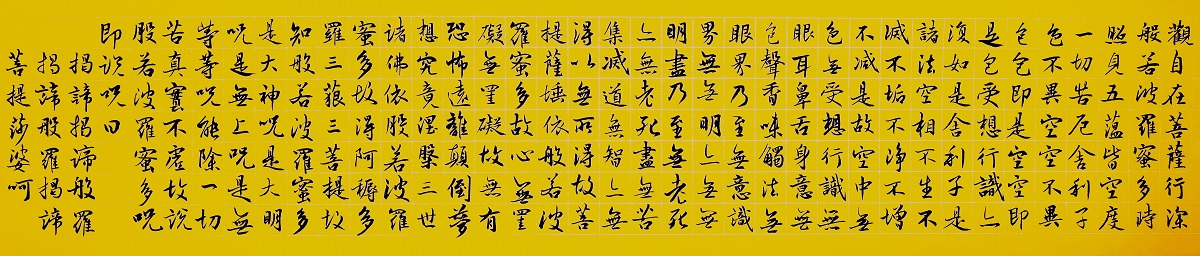 觀自在菩薩行深
般若波羅蜜多時
照見五蘊皆空度
一切苦厄舍利子
色不異空空不異
色色即是空空即
是色受想行識亦
復如是舍利子是
諸法空相不生不
滅不垢不淨不增
不減是故空中無
色無受想行識無
眼耳鼻舌身意無
色聲香味觸法無
眼界乃至無意識
界無無明亦無無
明盡乃至無老死
亦無老死盡無苦
集滅道無智亦無
得以無所得故菩
提薩埵依般若波
羅蜜多故心無罣
礙無罣礙故無有
恐怖遠離顛倒夢
想究竟涅槃三世
諸佛依般若波羅
蜜多故得阿耨多
羅三藐三菩提故
知般若波羅蜜多
是大神呪是大明
呪是無上呪是無
等等呪能除一切
苦真實不虛故說
般若波羅蜜多呪
即說呪曰
揭諦揭諦般羅
揭諦般羅揭諦
菩提莎婆呵